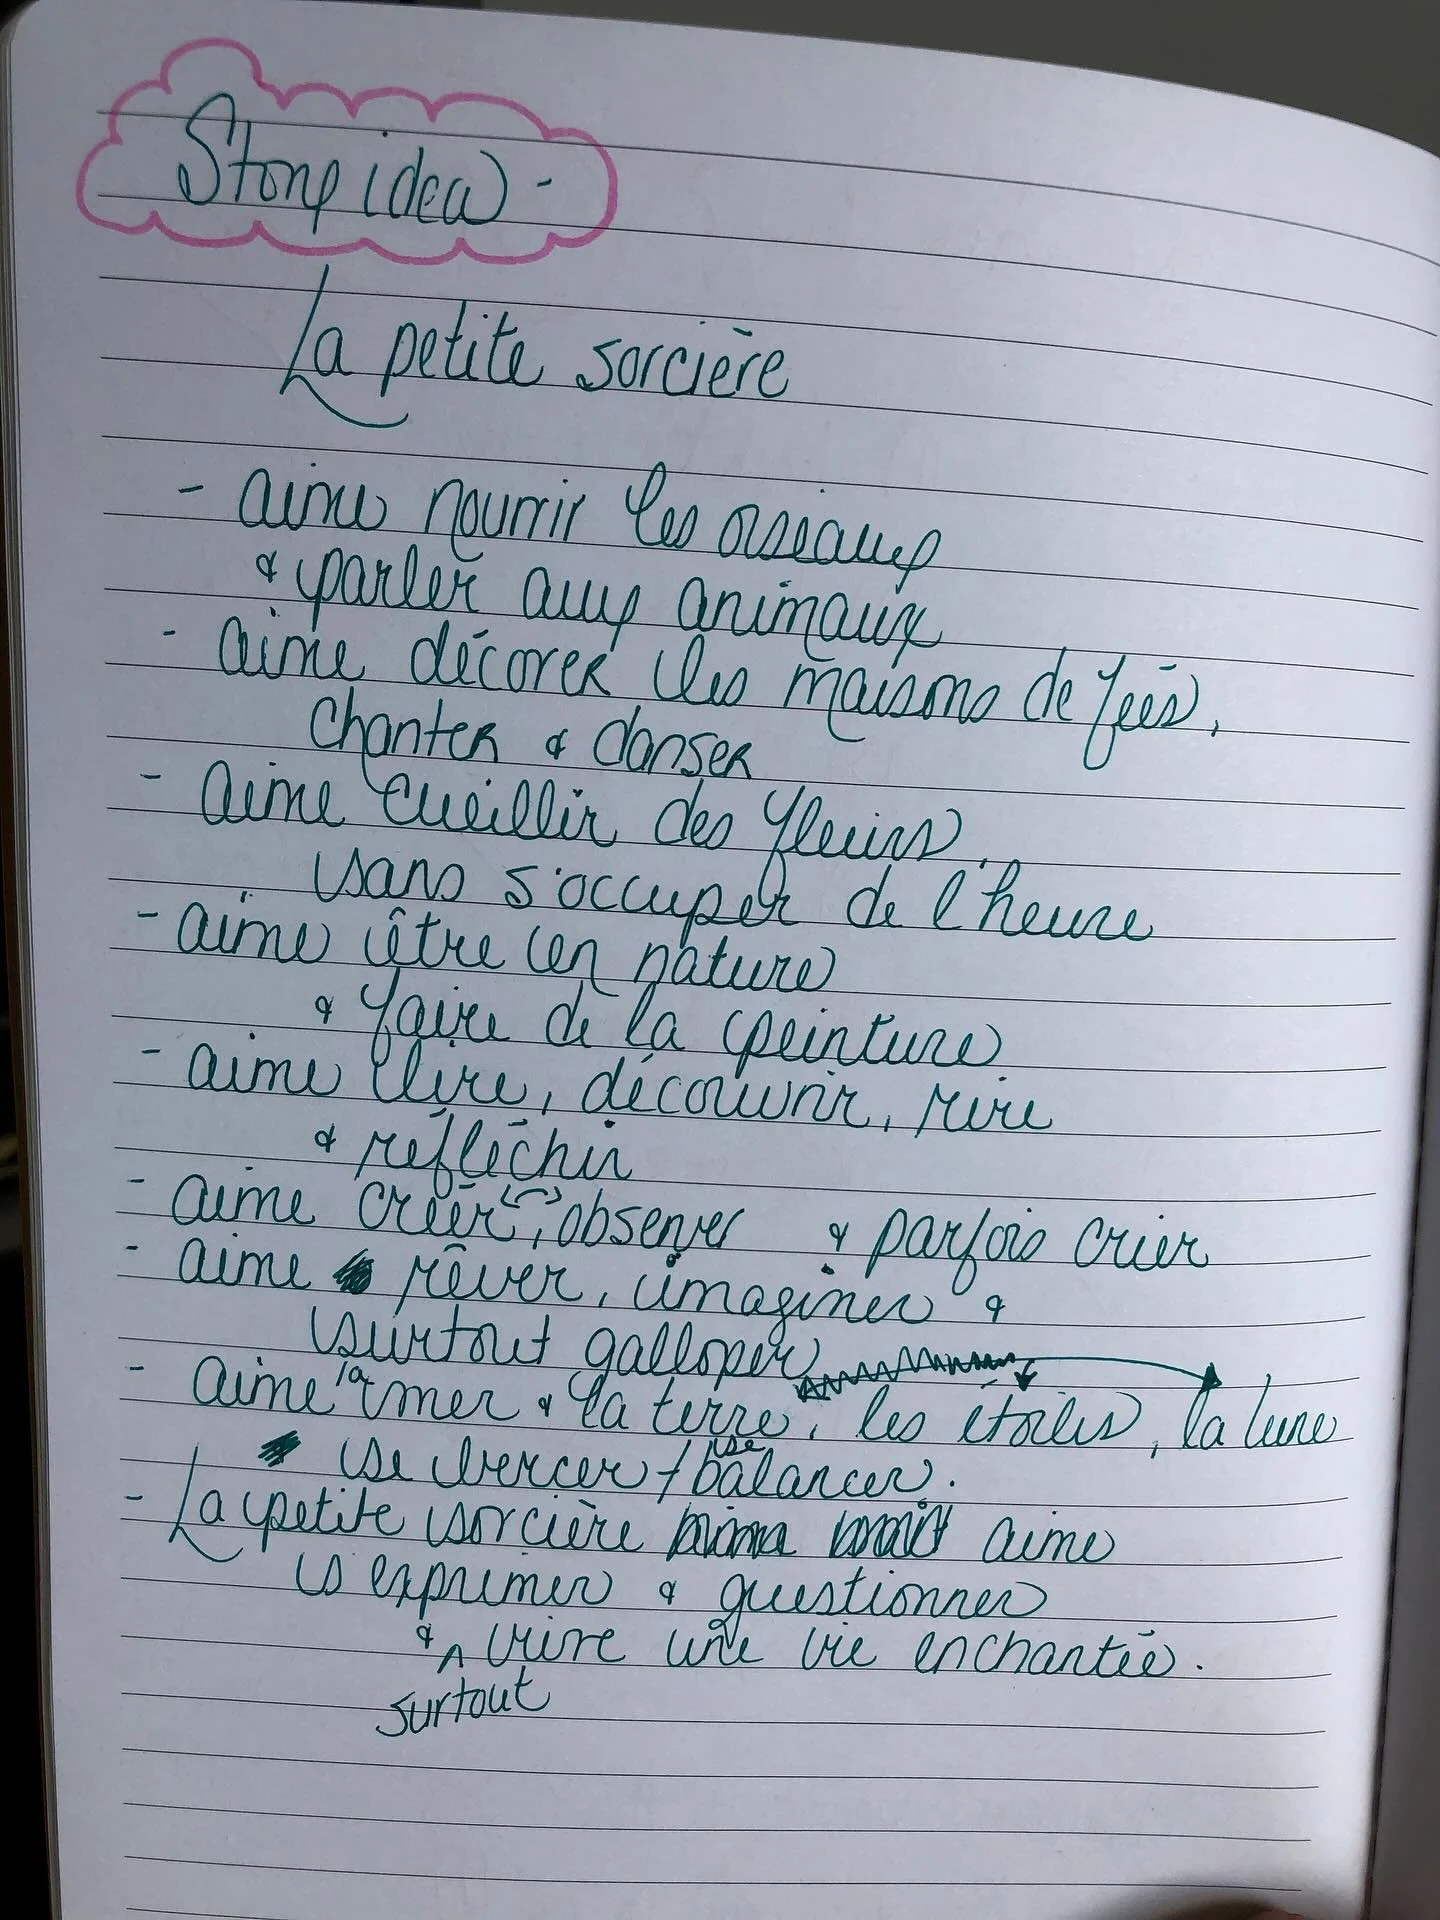 Story idea -
La petite sorcière
- aime nourrir les oiseaux
& parler aux animaux
- aime décorer les maisons de fées,
chanter & danser
- aime cueillir des fleurs,
sans s'occuper de l'heure
- aime être en nature
& faire de la peinture
- aime lire, découvrir, rire
& réfléchir
- aime créer, observer & parfois crier
- aime rêver, imaginer &
surtout galloper
- aime la mer & la terre, les étoiles, la lune
se bercer / se balancer.
- La petite sorcière aime
s'exprimer & questionner
& surtout vivre une vie enchantée.